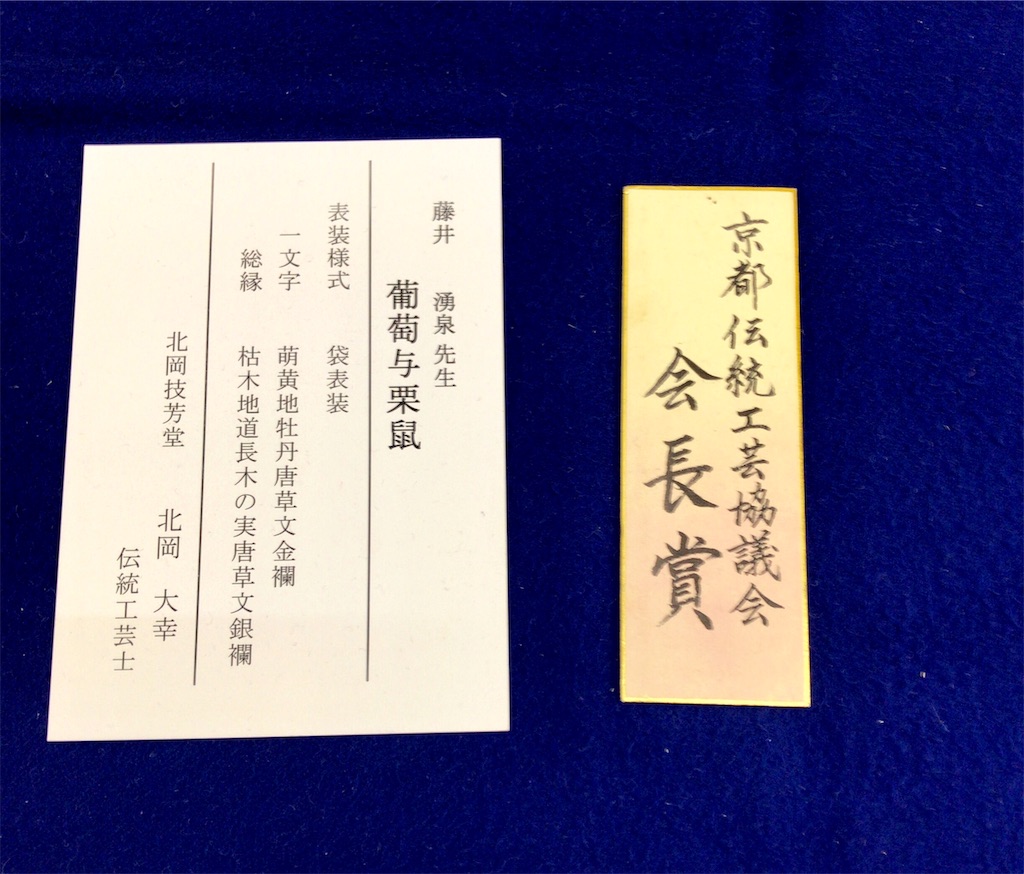 藤井 湧泉先生
葡萄与栗鼠
表装様式 袋表装
一文字 萌黄地牡丹唐草文金襴
総縁 枯木地道長木の実唐草文銀襴
北岡技芳堂 北岡 大幸
伝統工芸士
京都伝統工芸協議会
会長賞